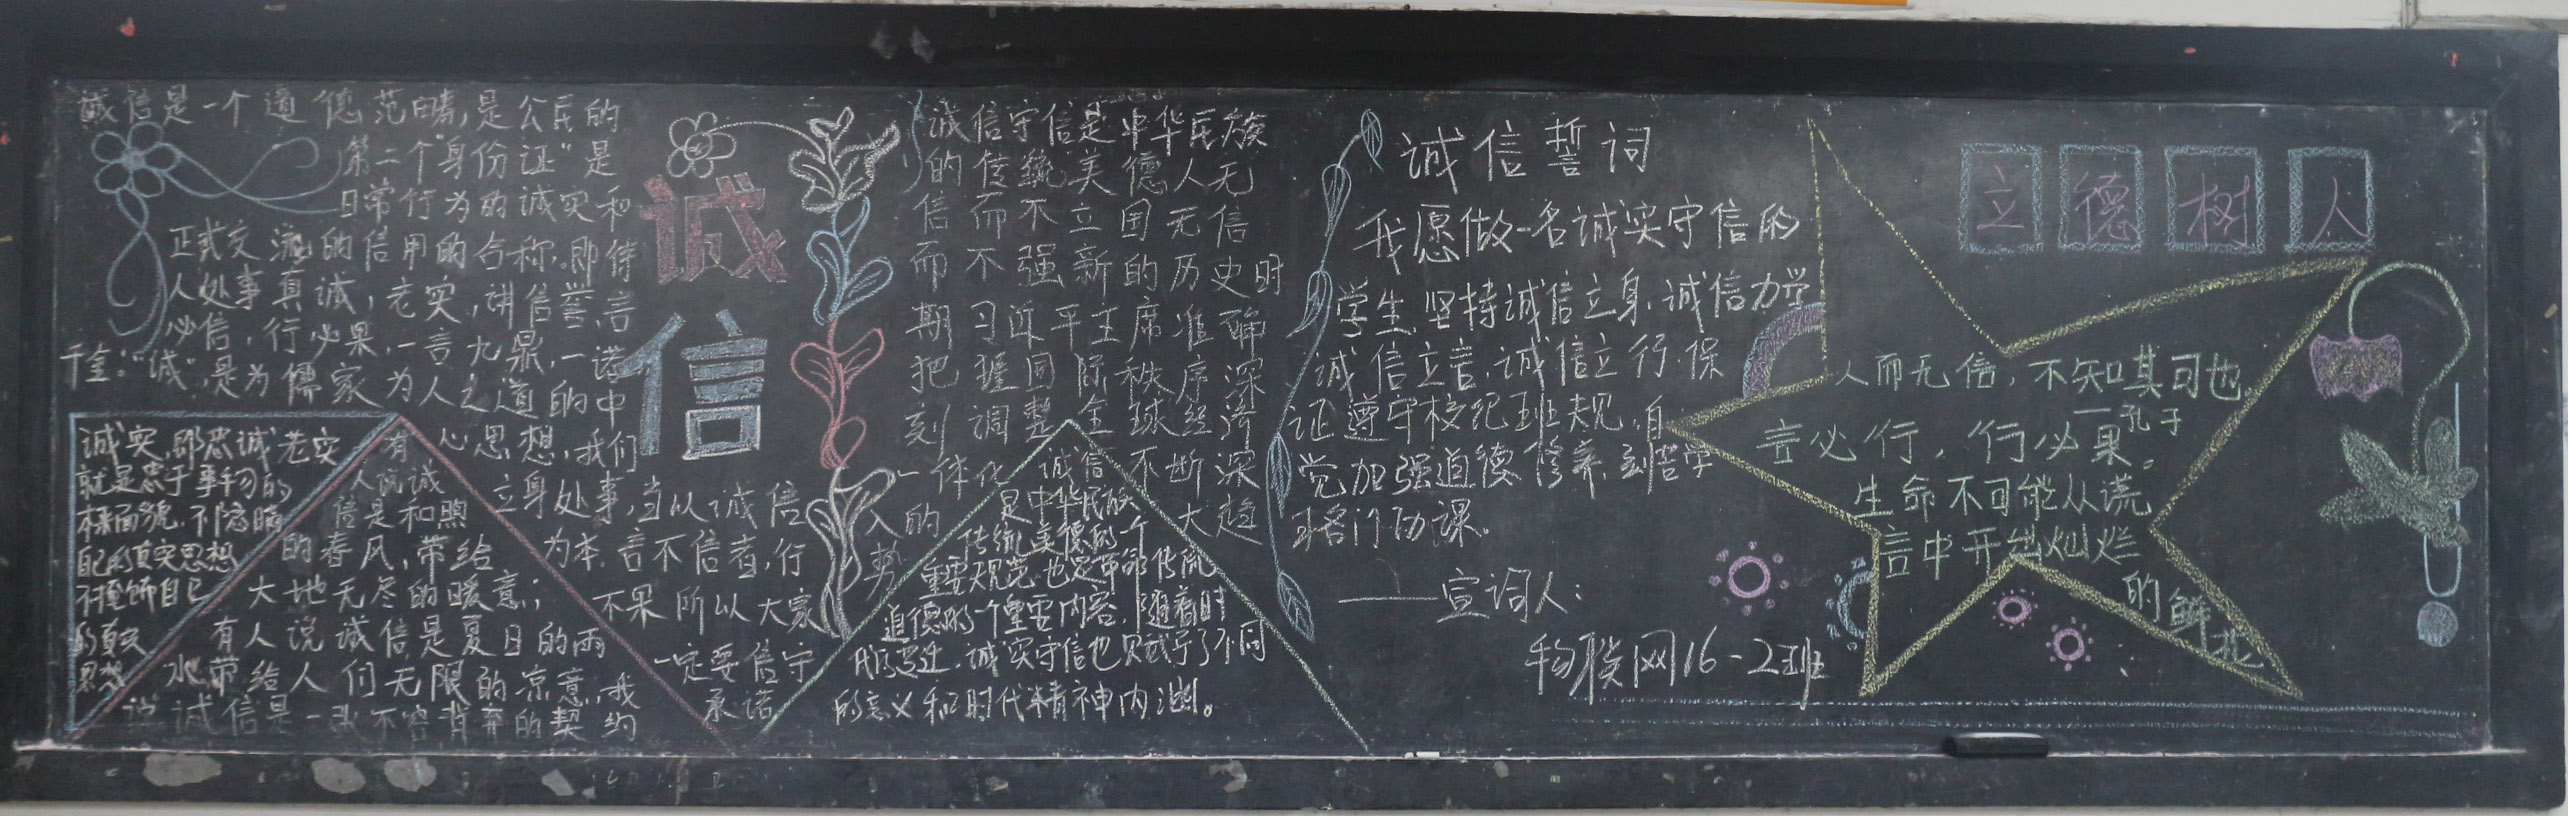 诚信是一个道德范畴,是公民的
第二个"身份证"是
日常行为的诚实和
正式交流的信用的合称,即待
人处事真诚,老实,讲信誉,言
必信,行必果,一言九鼎,一诺
千金:"诚",是为儒家为人之道的中
心思想,我们
立身处事,当以诚信
为本.言不信者,行
不果 所以大家
一定要信守
承诺
诚实,即忠诚老实
就是忠于事物的
本来面貌.不隐瞒
自己的真实思想
不掩饰自己
的真实
思想
有
人说诚
信是和煦
的春风,带给
大地无尽的暖意;
有人说诚信是夏日的雨
水带给人们无限的凉意,我
说诚信是一张不容背弃的契约
诚
信
诚信守信是中华民族
的传统美德人无
信而不立国无信
而不强新的历史时
期习近平主席准确
把握国际秩序深
刻调整全球经济
一体化不断深
入的大趋
势
诚信
是中华民族
传统美德的一个
重要规范,也是革命传统
道德的一个重要内容,随着时
代变迁.诚实守信也赋予了不同
的意义和时代精神内涵。
诚信誓词
我愿做一名诚实守信的
学生.坚持诚信立身.诚信力学
诚信立言.诚信立行.保
证遵守校纪班规.自
觉加强道德修养.刻苦学
习各门功课。
宣词人:
物联网16-2班
立德树人
人而无信,不知其可也。
—孔子
言必行,行必果。
生命不可能从谎
言中开出灿烂
的鲜花